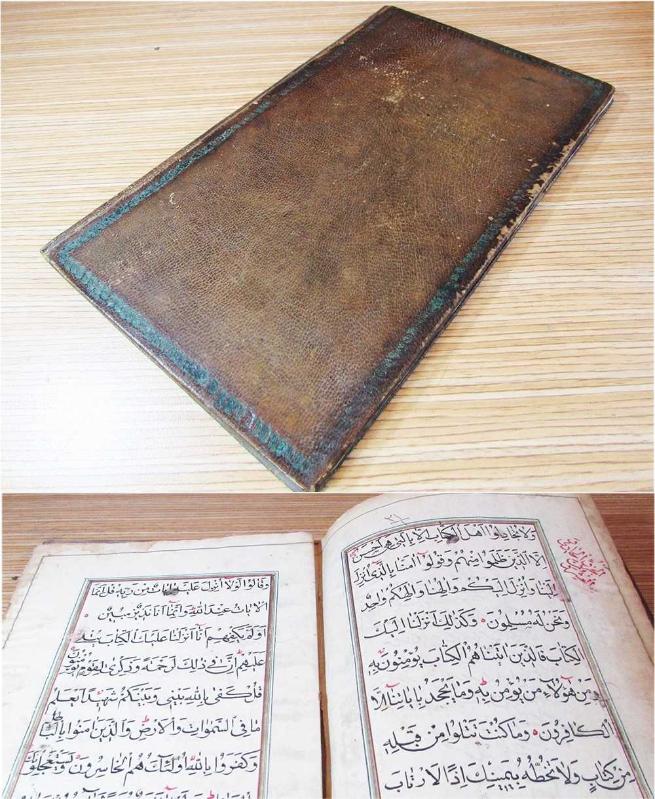 وَلَا تُجَادِلُوا أَهْلَ الْكِتَابِ إِلَّا بِالَّتِي هِيَ أَحْسَنُ
إِلَّا الَّذِينَ ظَلَمُوا مِنْهُمْ وَقُولُوا آمَنَّا بِالَّذِي أُنْزِلَ
إِلَيْنَا وَأُنْزِلَ إِلَيْكُمْ وَإِلَهُنَا وَإِلَهُكُمْ وَاحِدٌ
وَنَحْنُ لَهُ مُسْلِمُونَ وَكَذَلِكَ أَنْزَلْنَا إِلَيْكَ
الْكِتَابَ فَالَّذِينَ آتَيْنَاهُمُ الْكِتَابَ يُؤْمِنُونَ بِهِ
وَمِنْ هَؤُلَاءِ مَنْ يُؤْمِنُ بِهِ وَمَا يَجْحَدُ بِآيَاتِنَا إِلَّا
الْكَافِرُونَ وَمَا كُنْتَ تَتْلُوا مِنْ قَبْلِهِ
مِنْ كِتَابٍ وَلَا تَخُطُّهُ بِيَمِينِكَ إِذًا لَارْتَابَ
وَقَالُوا لَوْلَا أُنْزِلَ عَلَيْهِ آيَاتٌ مِنْ رَبِّهِ قُلْ إِنَّمَا
الْآيَاتُ عِنْدَ اللَّهِ وَإِنَّمَا أَنَا نَذِيرٌ مُبِينٌ
أَوَلَمْ يَكْفِهِمْ أَنَّا أَنْزَلْنَا عَلَيْكَ الْكِتَابَ يُتْلَى
عَلَيْهِمْ إِنَّ فِي ذَلِكَ لَرَحْمَةً وَذِكْرَى لِقَوْمٍ يُؤْمِنُونَ
قُلْ كَفَى بِاللَّهِ بَيْنِي وَبَيْنَكُمْ شَهِيدًا يَعْلَمُ
مَا فِي السَّمَوَاتِ وَالْأَرْضِ وَالَّذِينَ آمَنُوا بِالْبَاطِلِ
وَكَفَرُوا بِاللَّهِ أُولَئِكَ هُمُ الْخَاسِرُونَ وَيَسْتَعْجِلُونَكَ